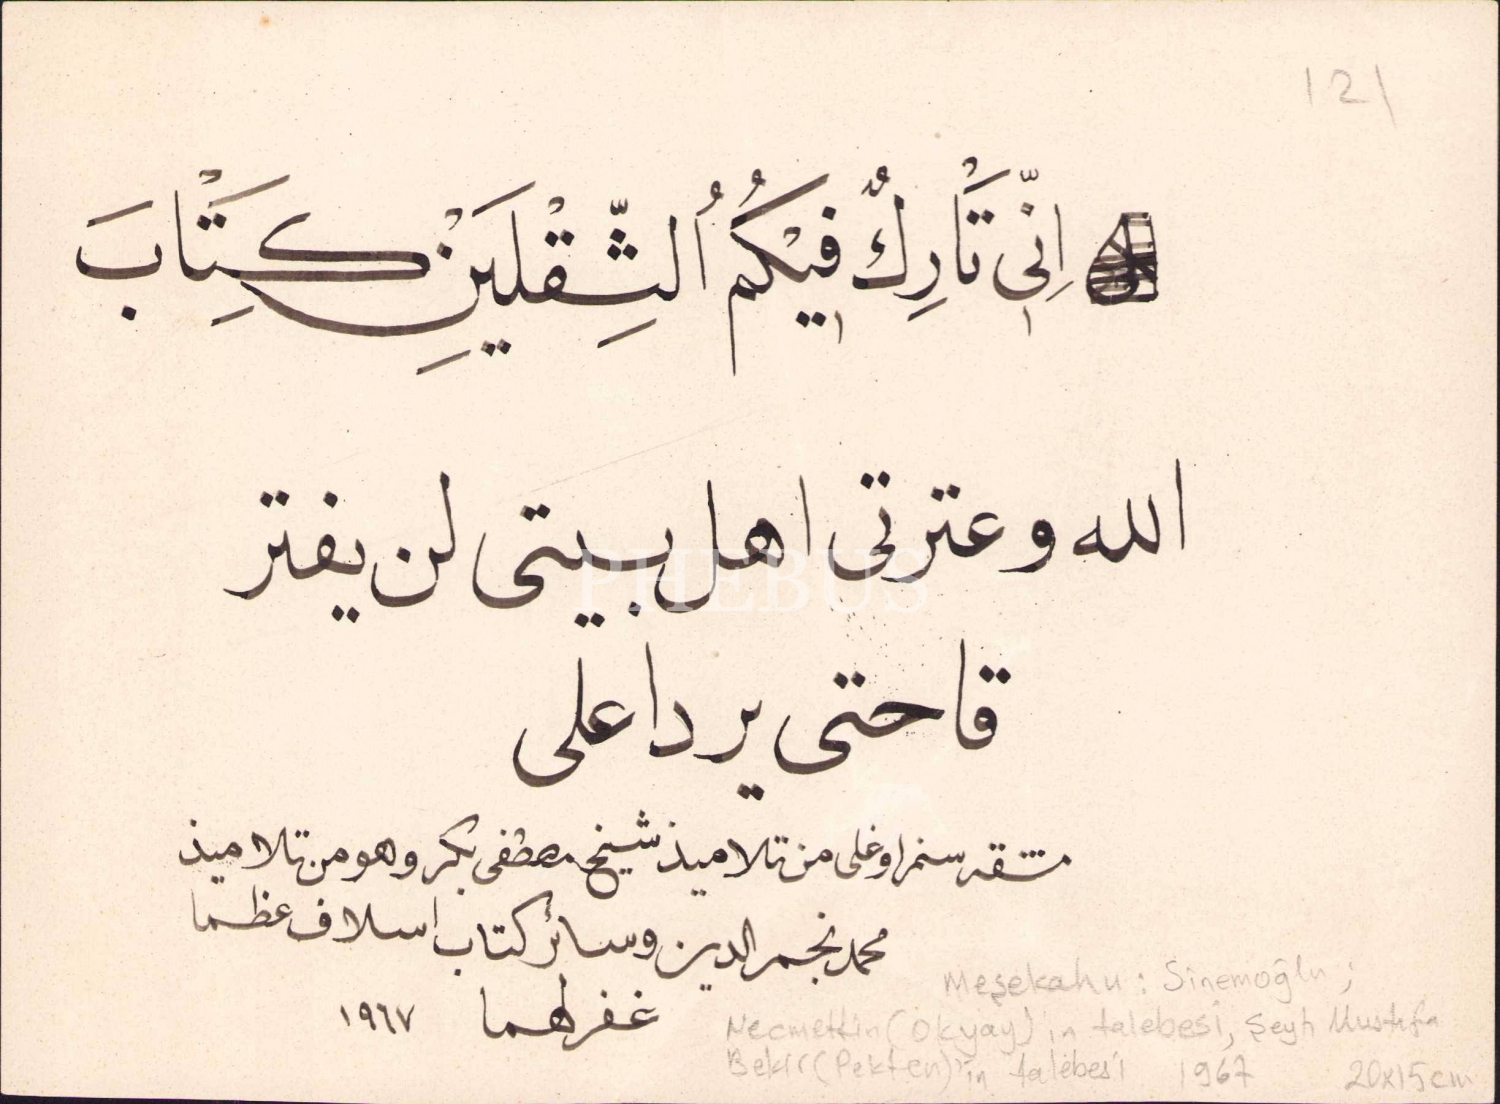 121
اِنّى تَارِكٌ فيْكُمُ الثِّقْلَيْنِ كِتَابَ
الله وعترتى اهل بيتى لن يفتر
قا حتى يردا على
PHEBUS
مشقه سنم اوغلى من تلاميذ شيخ مصطفى بكر وهو من تلاميذ
محمد نجم الدين وسائر كتاب اسلاف عظما
غفر لهما ١٩٦٧
Meşekahu : Sinemoğlu ;
Necmettin (Okyay) in talebesi, Şeyh Mustafa
Bekir (Pekten)'in talebesi 1967 20x15cm